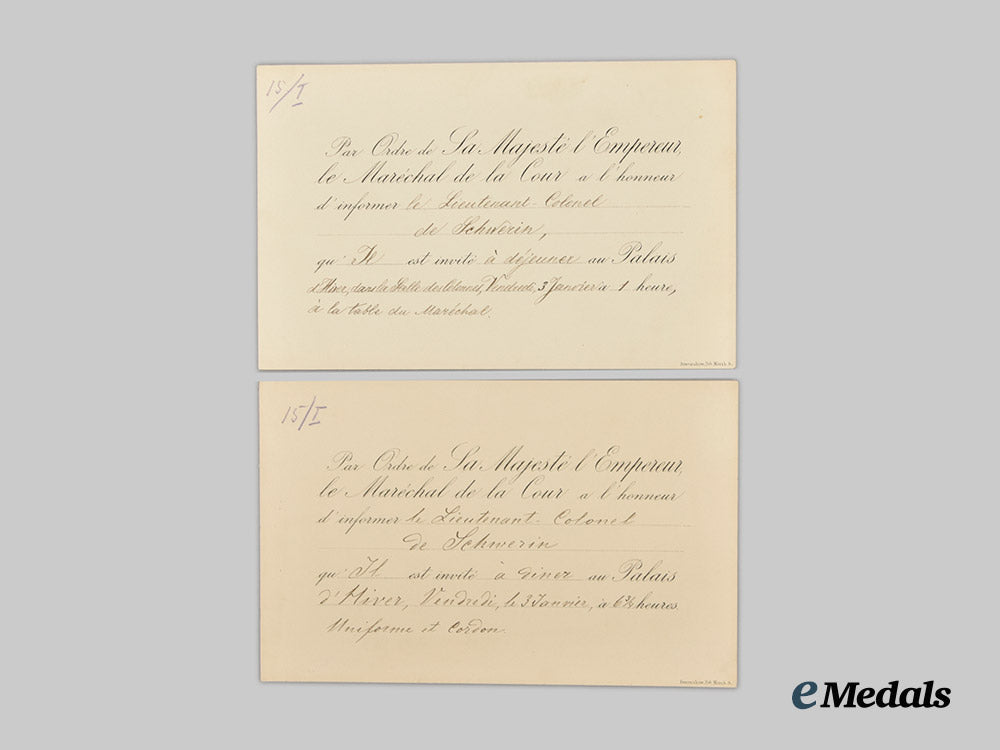 15/I
Par Ordre de Sa Majesté l'Empereur,
le Maréchal de la Cour a l'honneur
d'informer le Lieutenant-Colonel
de Schwerin,
qu'Il est invité à déjeuner au Palais
d'Hiver, dans la Salle des Colonnes, Vendredi, 3 Janvier à 1 heure,
à la table du Maréchal.
15/I
Par Ordre de Sa Majesté l'Empereur,
le Maréchal de la Cour a l'honneur
d'informer le Lieutenant-Colonel
de Schwerin
qu'Il est invité à diner au Palais
d'Hiver, Vendredi, le 3 Janvier, à 6½ heures.
Uniforme et Cordon.
eMedals